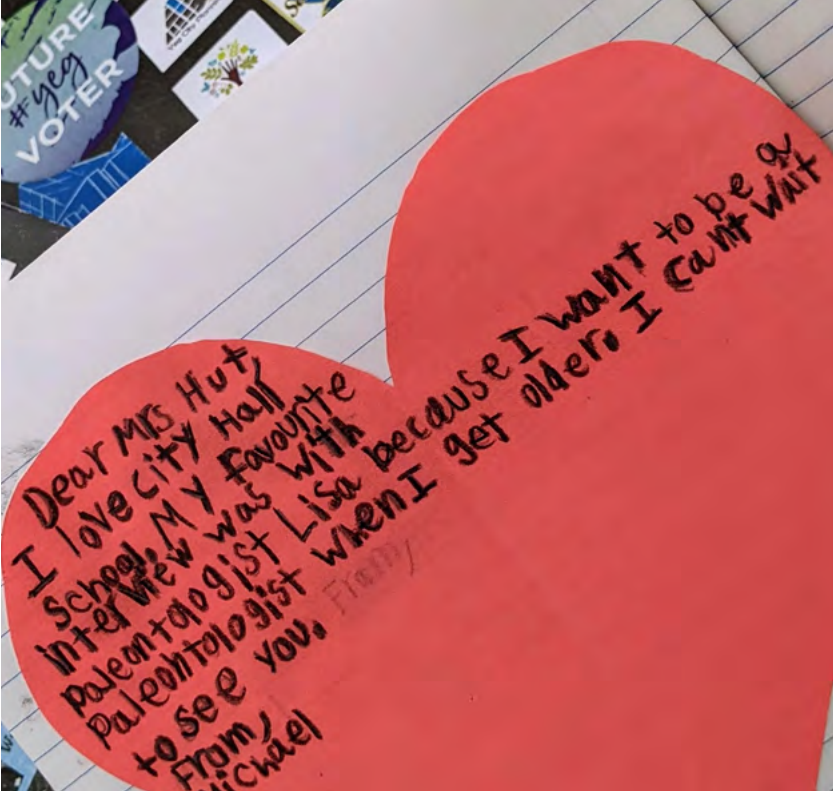 UTURE
#yeg
VOTER
Dear Mrs Hut,
I love city Hall
School. My favourite
interview was with
paleontologist Lisa because I want to be a
Paleontologist when I get older. I cant wait
to see you. From,
From,
Michael